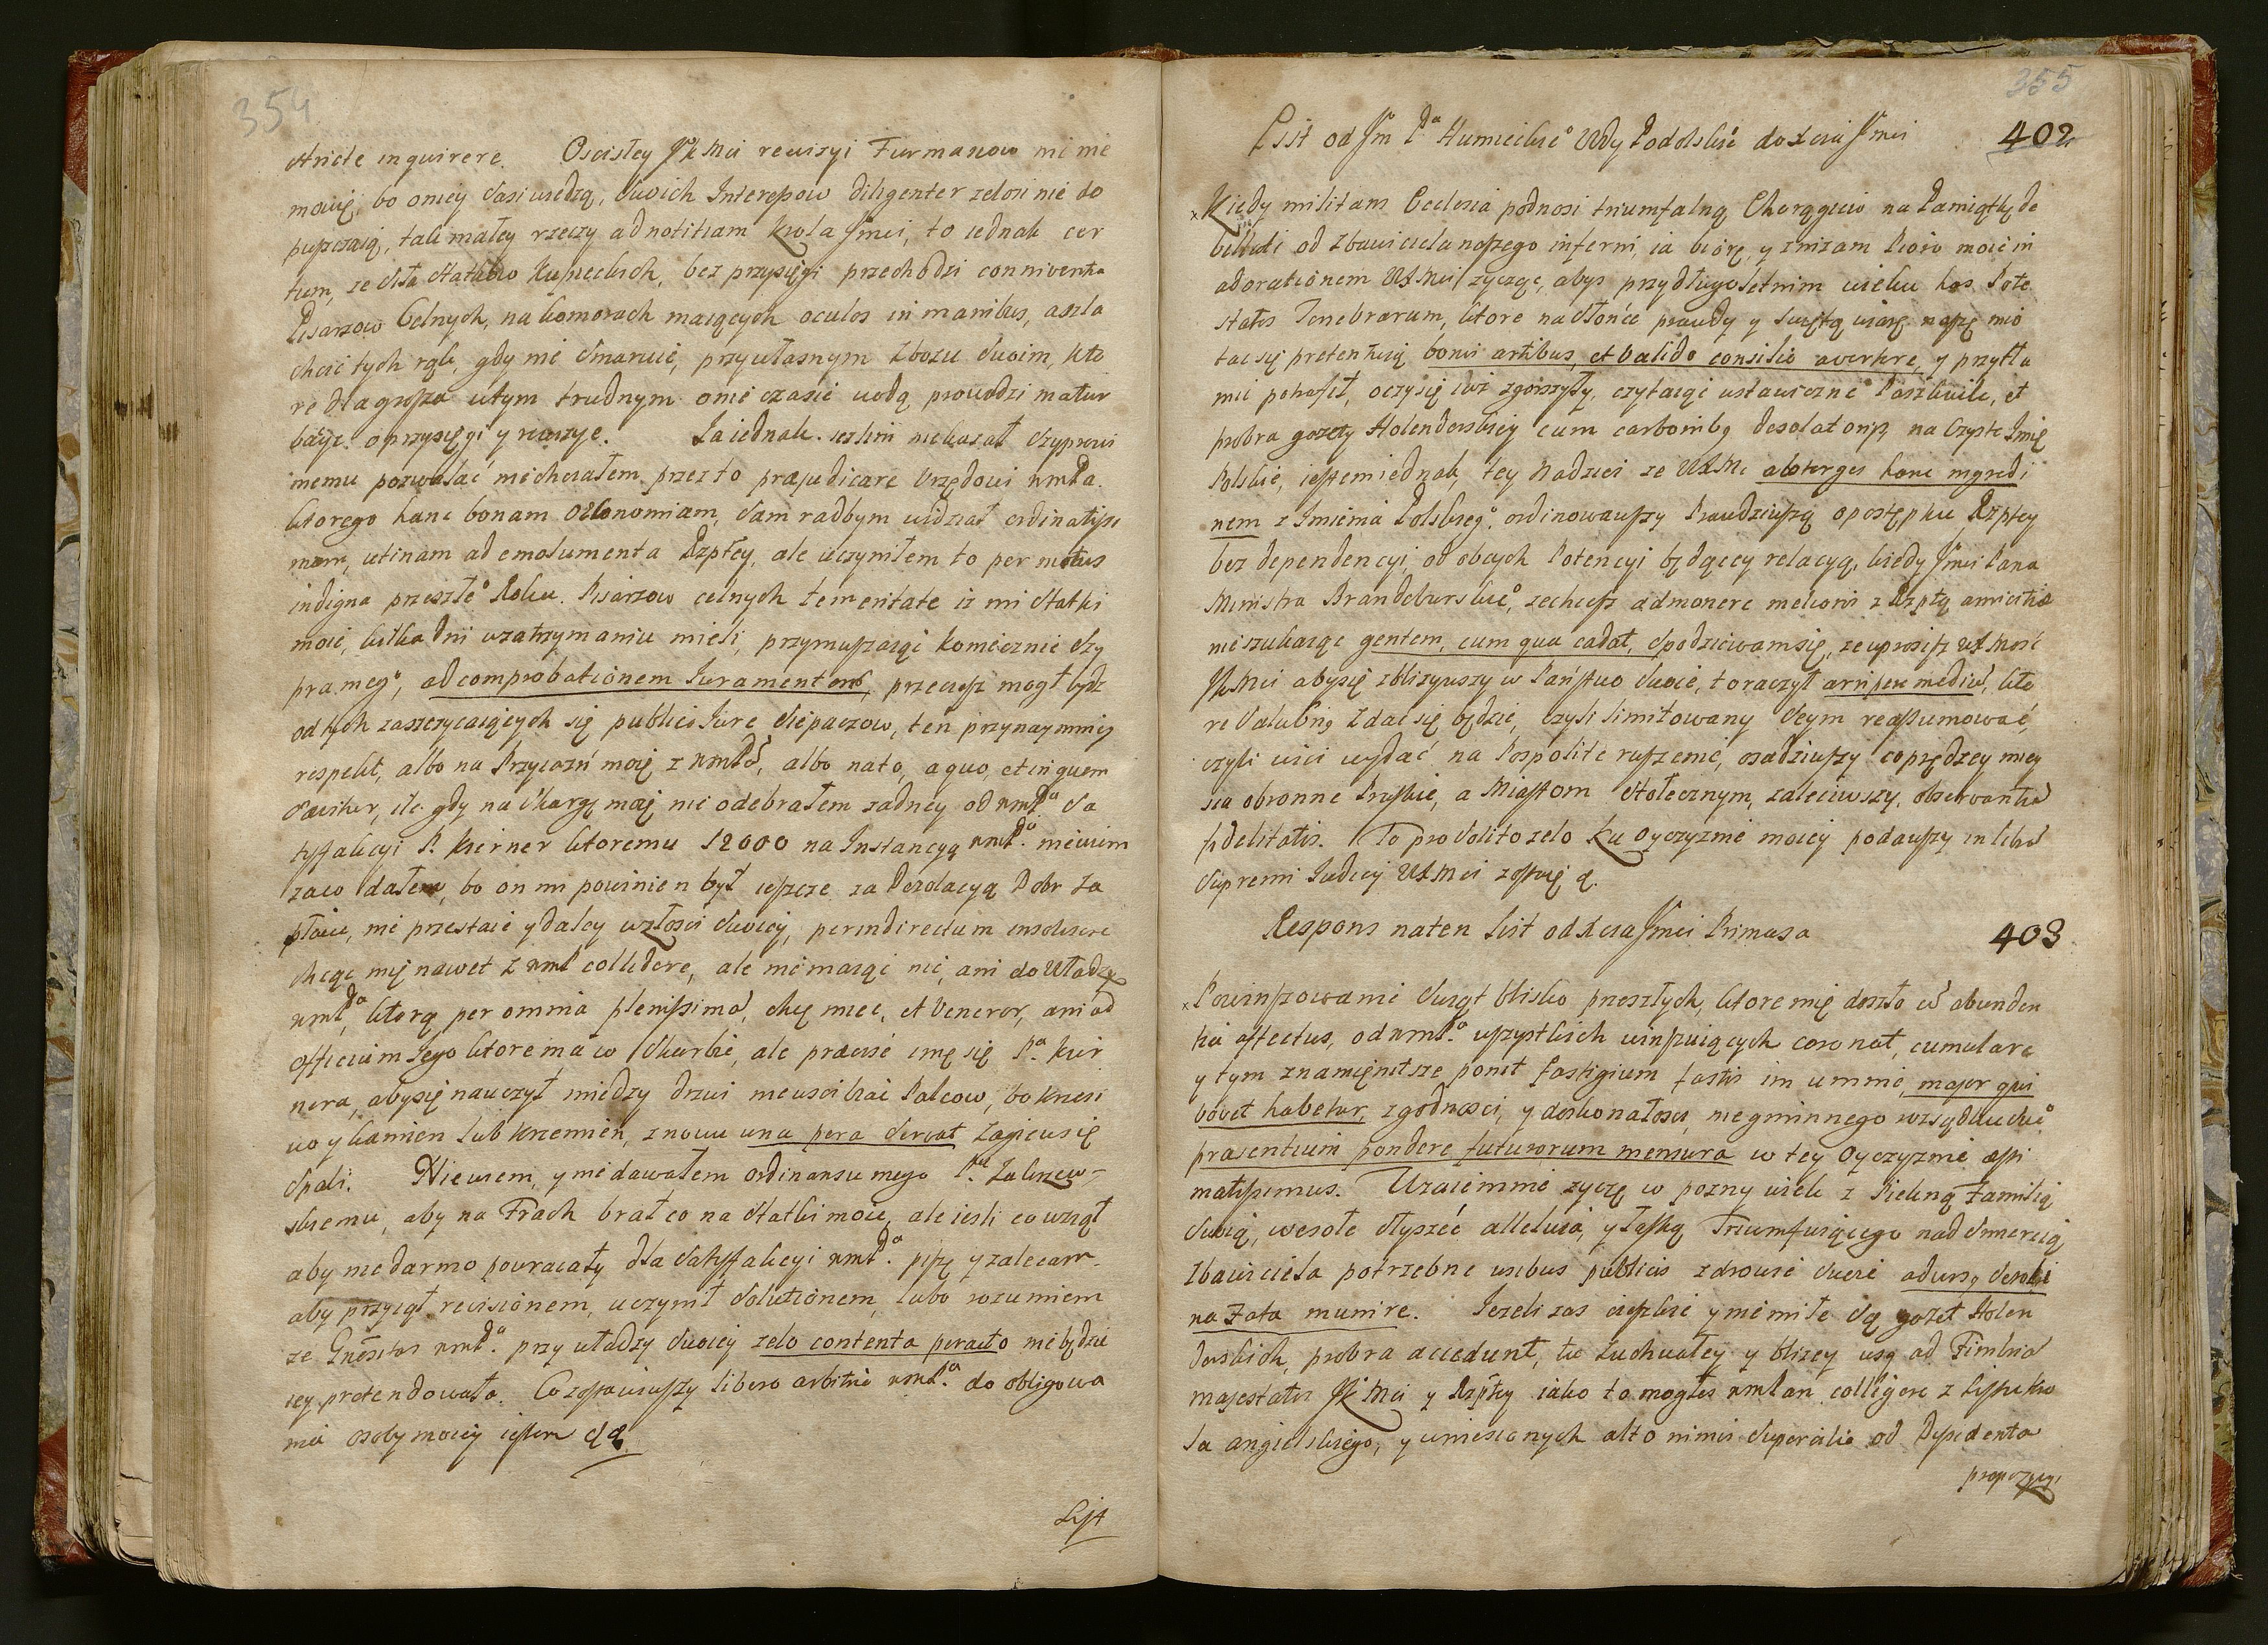 354
stricte inquirere. Oscisłey JKMci rewisyi Furmanow nic nie
mowię, bo oniey sasiwiedzą, swoich Interessow diligenter zelosi nie do
puszczaią, tak małey rzeczy ad notitiam Krola Jmci, to iednak cer
tum, ze dla statkow kupieckich, bez przysięgi przechodzi conniventia
Pisarzow Celnych, na komorach maiących oculos in manibus, aszla
checic tych rąk, gdy nie smaruie, przywłasnym Zbozu swoim, kto
re dla grosza wtym trudnym onie czasie wodą prowadzi matur
bacye. oprzysięgi y rewizye. Ja iednak. iezlim niekazał Szyprowi
memu pozwalać niechciałem przez to præjudicare Urzędowi wmPa.
ktorego hanc bonam Œkonomiam, sam radbym widział ordinatissi
mam, utinam ad emolumenta Rzpltey, ale uczyniłem to per motus
indigna przeszłego Roku. Pisarzow celnych temeritate iz mi statki
moie, kilka dni wzatrzymaniu mieli, przymuszaiąc koniecznie Szy
pra mego, ad comprobationem Iuramentorum, przeciesz mogł bydz
od tych zaszczycaiących się publico Iure siepaczow, ten przynaymniey
respekt, albo na Przyiazń moię z wmPem, albo nato, a quo, et in quem
sæviter, ile gdy na skargę moię nie odebrałem zadney od wmPa. sa
tysfakcyi P. Kierner ktoremu 12000 na Instancyą wmPa. niewiem
zaco dałem, bo on mi powinien był ieszcze za Dezolacyą Dobr za
płacic, nie przestaie y daley wzłosci swoiey, per indirectum insolescere
chcąc mię nawet z wmP collidere, ale nie maiąc nic, ani do Władzy
wmPa, ktorą per omnia plenissimam, chcę miec, et Veneror, ani ad
officium Jego ktore ma w skarbie, ale præcise imę się Pa. Kir
nera, aby się nauczył między drzwi nieuscibiac Palcow, bo krzesi
wo y kamien lub krzemien, znowu una pera servat zapieusię
spali. Niewiem, y nie dawałem ordinansu mego P. Zakrzew-
skiemu, aby na Frach brał co na statki moie, ale iesli co wziął
aby nie darmo powracały dla satysfakcyi wmPa. piszę y zalecam.
aby przyiął revisionem, uczynił solutionem, lubo rozumiem
ze Gnerositas wmPa. przy władzy swoiey zelo contenta peracto nie będzie
iey pretendowała. Co zostawiwszy libero arbitrio wmPa. do obligowa
nia osoby moiey iestem &c.
List
355
List od Jm Pa Humieckiego Wdy Podolskiego do Xcia Jmci 402
Kiedy militans Ecclesia podnosi triumfalną Chorągiew na Pamiątkę de
bellati od Zbawiciela naszego inferni, ia biorę, y znizam Pioro moie in
adorationem WXMci zycząc, abys przydługoletnim wieku has Pote
states Tenebrarum, ktore na słońce prawdy y swiętą wiarę naszę mio
tac się pretenduią bonis artibus, et valido consilio avertere, y przytłu
mic potrafił, oczy się iuż zgorszyły, czytaiąc ustawiczne Paszkwile, et
probra gazety Holenderskiey cum carbonibus desolatoriis, na Czyste Imię
Polskie, iestem iednak, tey nadziei ze WXMc absterges hanc ingredi
nem z Imienia Polskiego, ordinowawszy Prawdziwszą o postępku Rzptey
bez dependencyi, od obcych Potencyi będącey relacyą, kiedy Jmci Pana
Ministra Brandeburskiego, zechcesz admonere melioris z Rzptą amicitiæ
nie szukaiąc gentem, cum qua cadat, spodziewam się, ze uprosisz WXMosć
JKMci aby się zblizywszy w Państwo swoie, to raczył arripere medium, kto
re Salubrius zdac się będzie, czyli limitowany Seym reassumować,
czyli wici wydać na Pospolite ruszenie, osadziwszy coprędzey miey
sca obronne Pruskie, a Miastom stołecznym, zaleciwszy, observantiam
fidelitatis. To pro solito zelo ku Oyczyznie moiey podawszy in libram
supremi Iudicij WXMci zostaię &.
Respons na ten List od Xcia Jmci Primasa 403
Powinszowanie Swiąt blisko przeszłych, ktore mię doszło cum abunden
tia affectus, od wmPa. wszystkich winszuiących coronat, cumulare
y tym znamięnitsze ponit fastigium fastis im ummie, major qui
vovet habetur, zgodnosci, y doskonałosci, niegminnego rozsądku, duo
præsentium pondere futurorum mensura w tey Oyczyznie æsti
matissimus. Wzaiemnie zyczę w pozny wiek z Piękną Familią
swoią, wesołe słyszeć alleluia, y łaską Tryumfuiącego nad smiercią
Zbawiciela potrzebne usibus publicis zdrowie swoie adversus Senti
na Fata munire. Jezeli zas cięzkie y niemiłe są gazet Holen
derskich, probra accedunt, tu zuchwałey y blizey usque ad Fimbriam
majestatis JKMci y Rzptey iako to mogłes wmPan colligere z Listu Kro
la angielskiego, y wniesionych alto nimis Supercilio od Dyssidentow
propozycyi